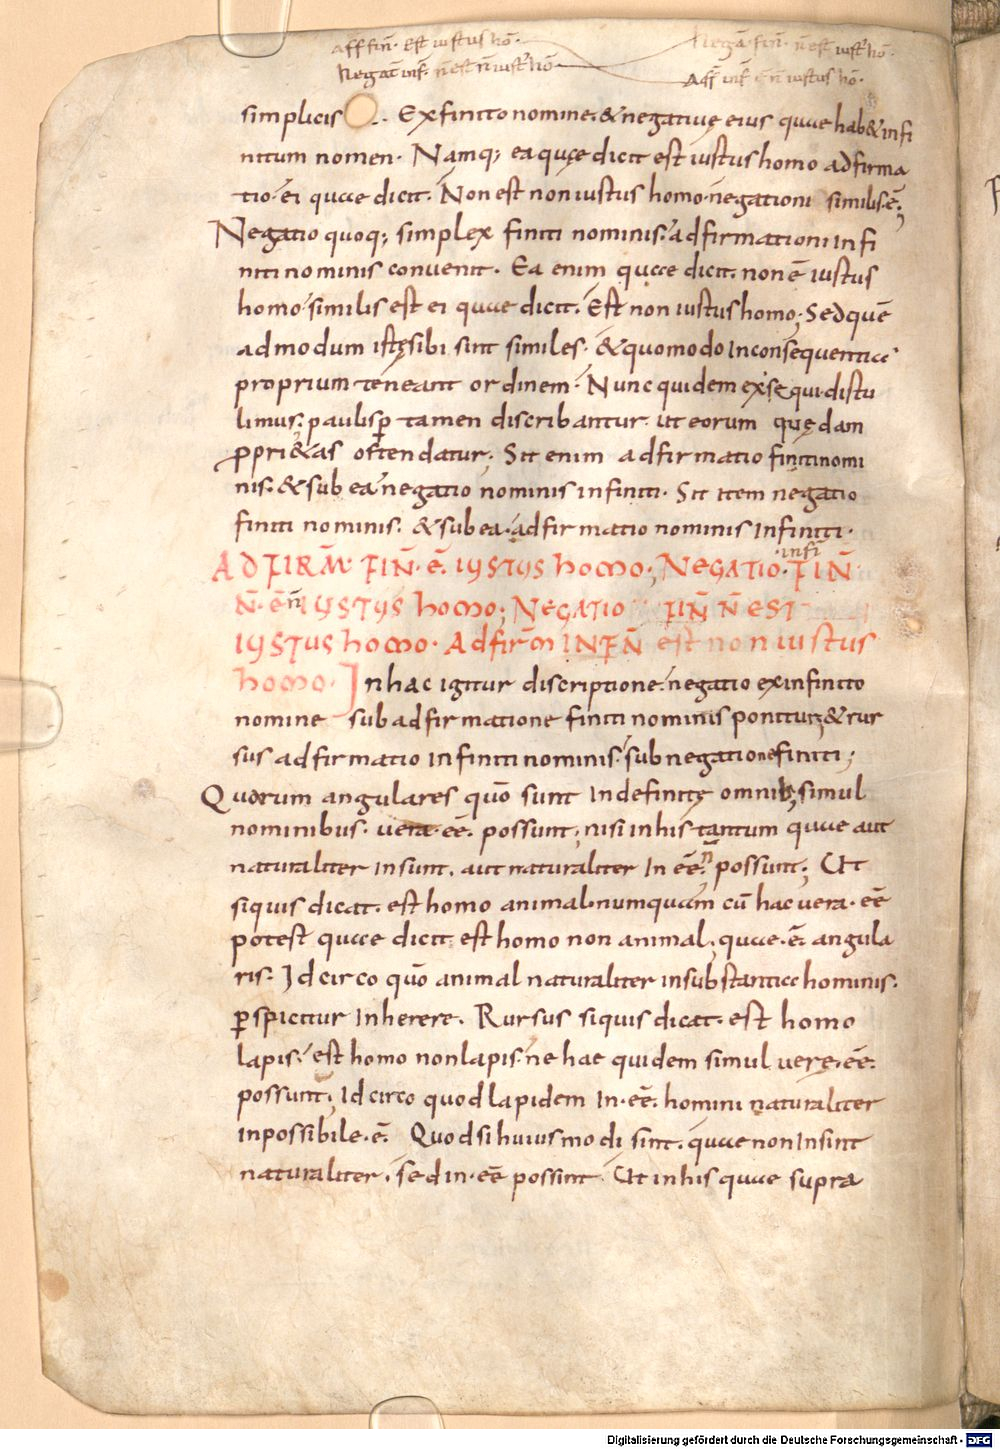 aff fin̄. Est iustus hō. Nega. fin̄. n̄ est iust' hō.
Negat̄ inf̄. n̄ est n̄ iust' hō Aff̄ inf̄ ē n̄ iustus hō.
simplicis. Ex finito nomine. & negative eius quae hab& infi
nitum nomen. Namq; ea quę dicit est iustus homo adfirma
tio. ei quae dicit. Non est non iustus homo. negationi similis ē;
Negatio quoq; simplex finiti nominis. adfirmationi infi
niti nominis convenit. Ea enim quae dicit. non ē iustus
homo similis est ei quae dicit. Est non iustus homo; Sed quē
admodum istę sibi sint similes. & quomodo Inconsequentia
proprium teneant ordinem. Nunc quidem exsequi distu
limus; paulisp̄ tamen discribantur. ut eorum quędam
ꝓpri&as ostendatur; Sit enim adfirmatio finitinomi
nis. & sub ea negatio nominis infiniti. Sit item negatio
finiti nominis. & sub ea. adfirmatio nominis Infiniti.
infi
ADFIRM̄. FIN̄. ē. IUSTUS homo; NEGATIO. FIN̄
N̄. ē n̄ IUSTUS homo; NEGATIO FIN̄ N̄ EST
IUSTUS homo. Adfirm̄ INFN̄ est non iustus
homo. In hac igitur discriptione. negatio exinfinito
nomine sub adfirmatione finiti nominis ponitur; & rur
sus adfirmatio Infiniti nominis. sub negatione finiti;
Quorum angulares quō sunt Indefinitę omnib; simul
nominibus. vera. eē. possunt; nisi inhis tantum quae aut
naturaliter Insunt. aut naturaliter In eē n̄ possunt; Ut
siquis dicat. est homo animal. numquam cū hac vera. eē
potest quae dicit est homo non animal; quae. ē. angula
ris. Idcirco quō animal naturaliter insubstantia hominis.
p̄spicitur Inherere. Rursus siquis dicat. est homo
lapis. est homo non lapis. ne hae quidem simul verę. eē.
possunt; Idcirco quod lapidem In. eē. homini naturaliter
inpossibile. ē. Quod si huiusmodi sint. quae non Insint
naturaliter. sed in. eē possint. Ut in his quae supra
Digitalisierung gefördert durch die Deutsche Forschungsgemeinschaft - DFG